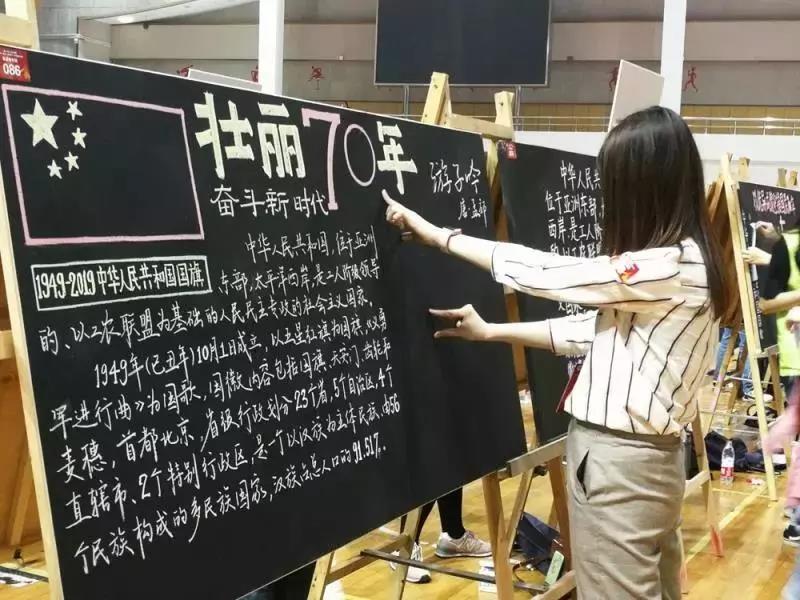 086
壮丽70年
奋斗新时代
游子吟
唐·孟郊
1949-2019中华人民共和国国旗
中华人民共和国,位于亚洲
东部,太平洋西岸,是工人阶级领导
的、以工农联盟为基础的人民民主专政的社会主义国家,
1949年(己丑年)10月1日成立,以五星红旗为国旗,《义勇
军进行曲》为国歌,国徽内容包括国旗、天安门、齿轮和
麦穗,首都北京,省级行政划分23个省、5个自治区、4个
直辖市、2个特别行政区,是一个以汉族为主体民族、由56
个民族构成的多民族国家,汉族占总人口的91.51%。
中华人民
位于亚洲东部
西岸,是工人阶